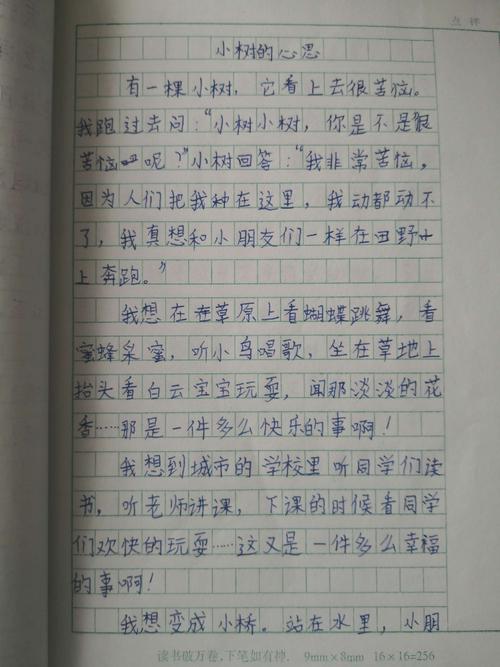 点评
小树的心思
有一棵小树，它看上去很苦恼。
我跑过去问：“小树小树，你是不是很
苦恼呢？”小树回答：“我非常苦恼，
因为人们把我种在这里，我动都动不
了，我真想和小朋友们一样在田野
上奔跑。”
我想在在草原上看蝴蝶跳舞，看
蜜蜂采蜜，听小鸟唱歌，坐在草地上
抬头看白云宝宝玩耍，闻那淡淡的花
香……那是一件多么快乐的事啊！
我想到城市的学校里听同学们读
书，听老师讲课，下课的时候看同学
们欢快的玩耍……这又是一件多么幸福
的事啊！
我想变成小桥。站在水里，小朋
读书破万卷，下笔如有神. 9mm×8mm 16×16=256